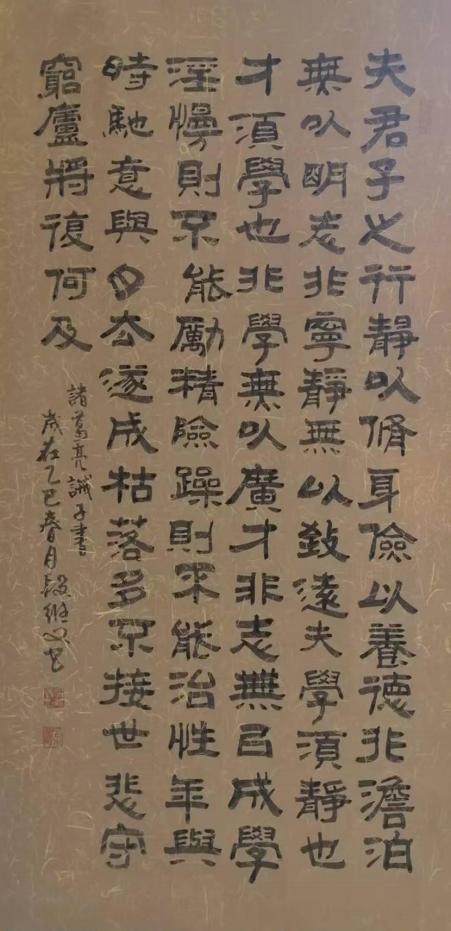 夫君子之行靜以脩身儉以養德非澹泊
無以明志非寧靜無以致遠夫學須靜也
才須學也非學無以廣才非志無㠯成學
淫慢則不能勵精險躁則不能治性年與
時馳意與日去遂成枯落多不接世悲守
窮廬將復何及
諸葛亮誡子書
歲在乙巳春月段維書